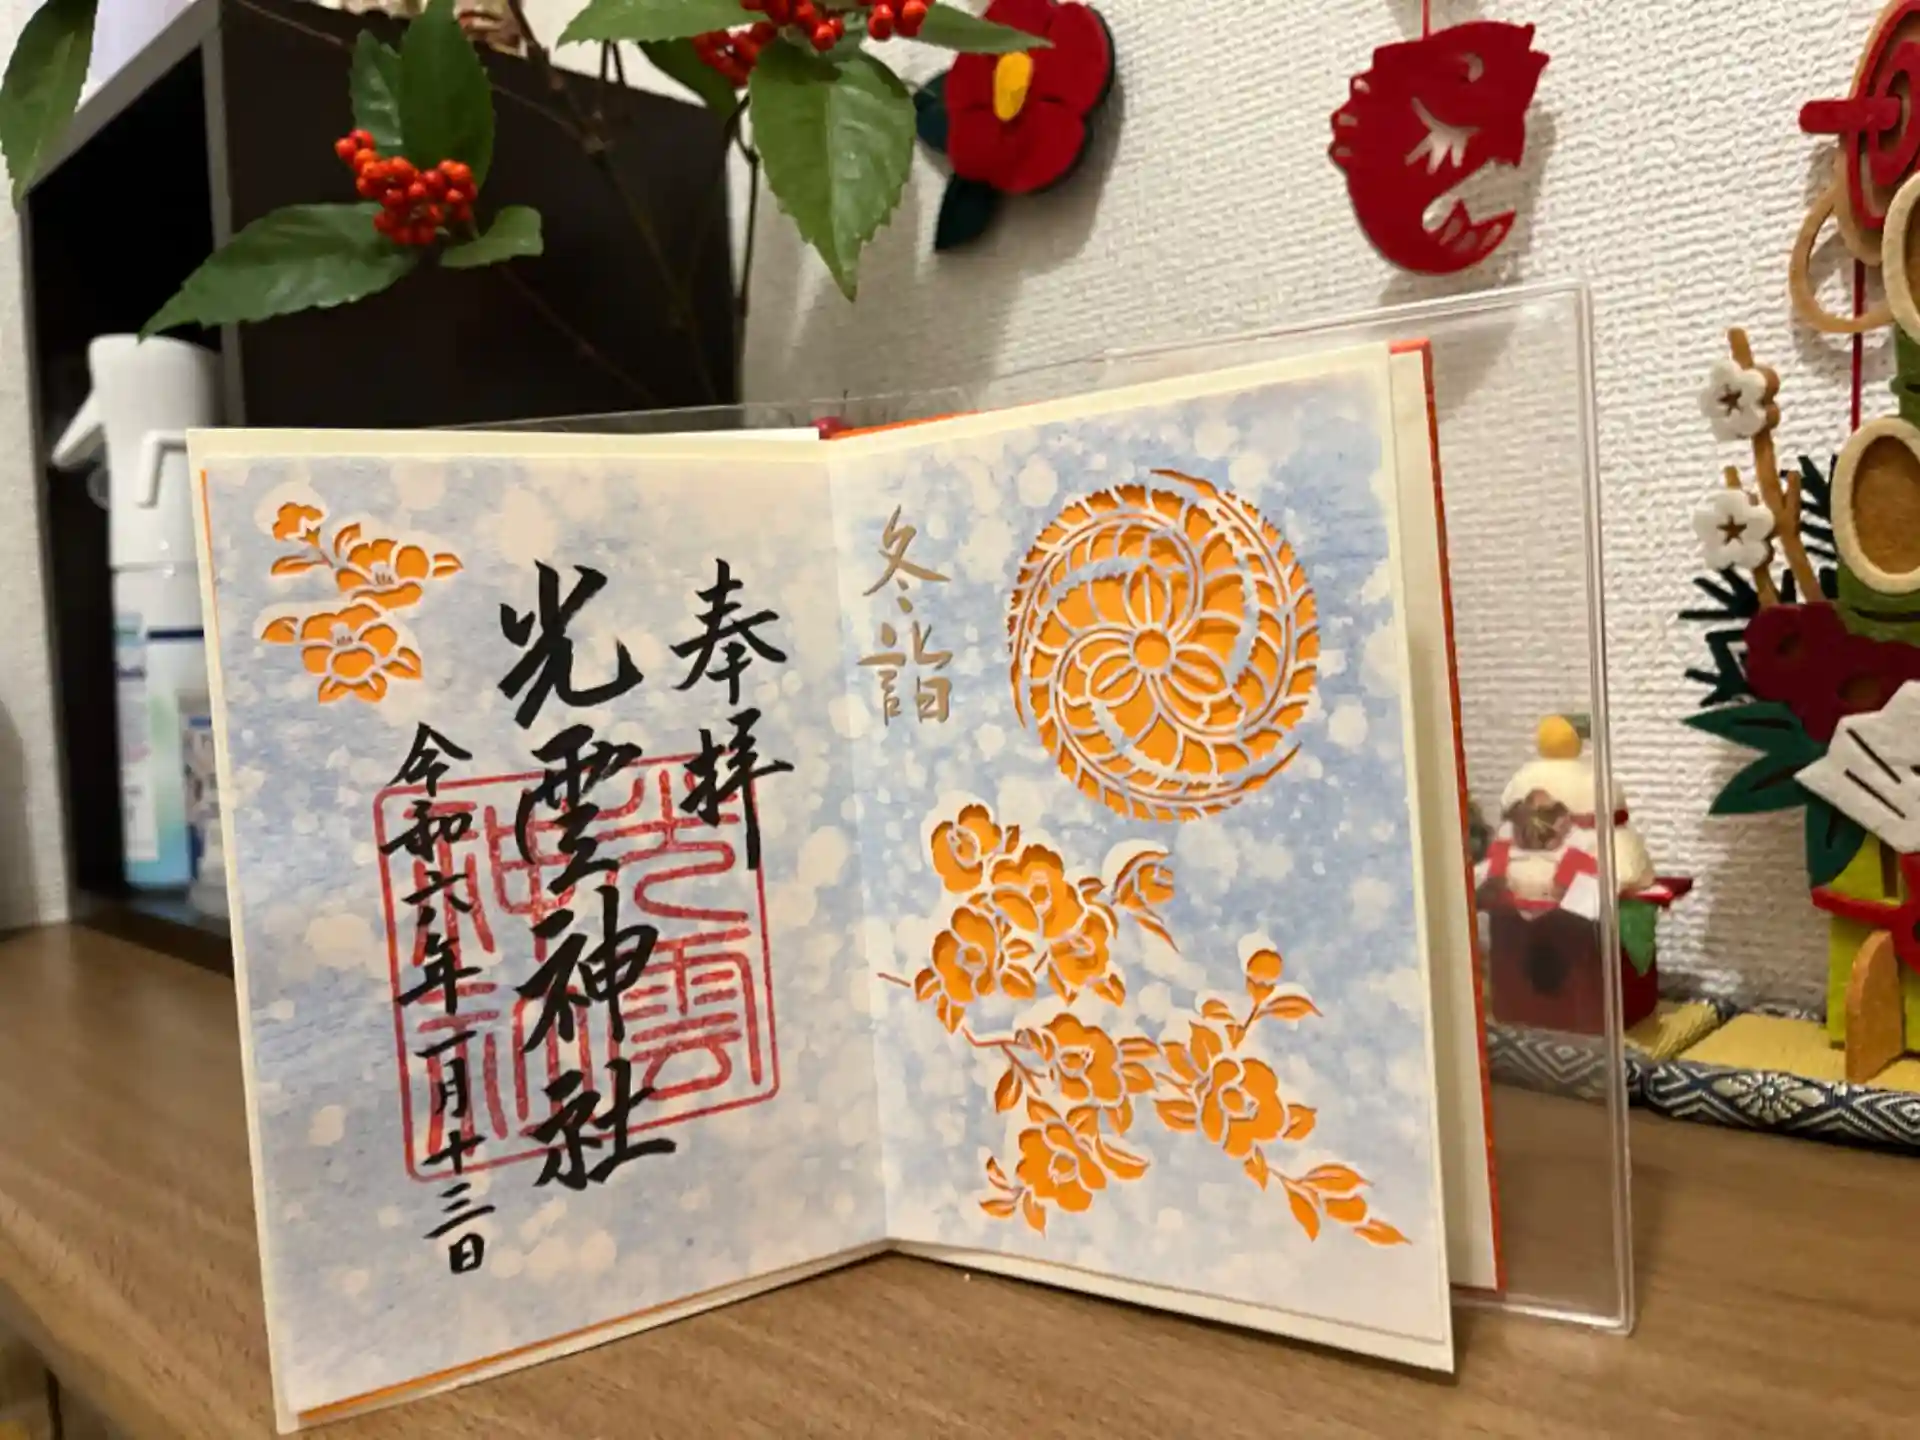 冬詣
奉拝
光雲神社
令和六年一月十三日
光雲
神社